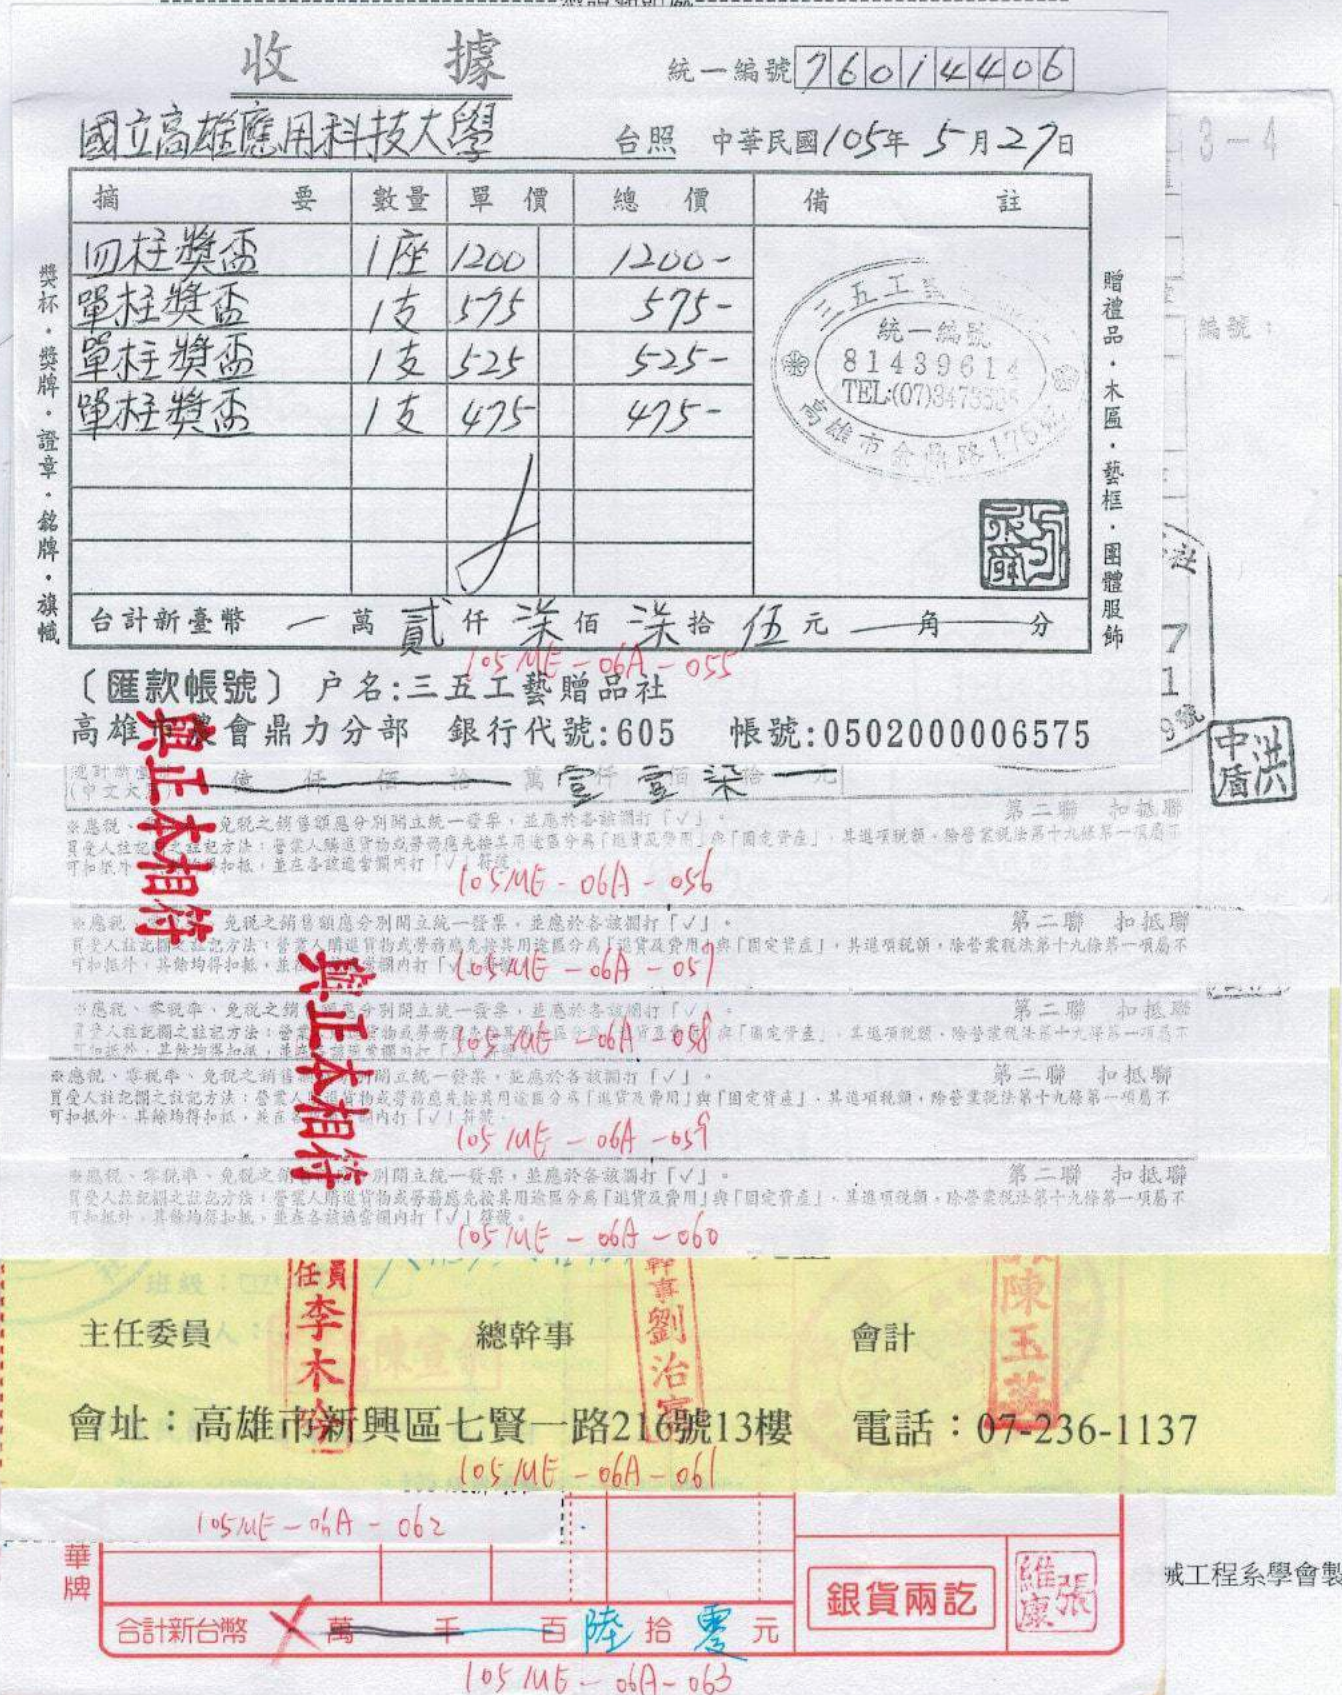 收據
統一編號 76014406
國立高雄應用科技大學 台照 中華民國105年5月27日
3-4
摘要 數量 單價 總價 備註
四柱獎盃 1座 1200 1200-
單柱獎盃 1支 575 575-
單柱獎盃 1支 525 525-
單柱獎盃 1支 475 475-
獎杯・獎牌・證章・銘牌・旗幟
贈禮品・木匾・藝框・團體服飾
編號:
三五工
統一編號
81439614
TEL:(07)3473535
高雄市金鼎路175號
合計新臺幣 一萬貳仟柒佰柒拾伍元 角 分
105ME-06A-055
〔匯款帳號〕 戶名:三五工藝贈品社
高雄市農會鼎力分部 銀行代號:605 帳號:0502000006575
與正本相符
洪中盾
億 仟 佰 拾 萬 仟 佰 拾 元
壹壹柒一
第二聯 扣抵聯
※應稅、 免稅之銷售額應分別開立統一發票,並應於各該欄打「√」。
買受人註記 之註記方法:營業人購進貨物或勞務應先按其用途區分為「進貨及費用」與「固定資產」,其進項稅額,除營業稅法第十九條第一項屬不
可扣抵外, 得扣抵,並在各該適當欄內打「√」符號。
105ME-06A-056
※應稅、 免稅之銷售額應分別開立統一發票,並應於各該欄打「√」。
第二聯 扣抵聯
買受人註記欄之註記方法:營業人購進貨物或勞務應先按其用途區分為「進貨及費用」與「固定資產」,其進項稅額,除營業稅法第十九條第一項屬不
可扣抵外,其餘均得扣抵,並在 當欄內打「√」符號。
105ME-06A-057
與正本相符
※應稅、零稅率、免稅之銷 應分別開立統一發票,並應於各該欄打「√」。
第二聯 扣抵聯
買受人註記欄之註記方法:營業 貨物或勞務應先按其用途區分為「進貨及費用」與「固定資產」,其進項稅額,除營業稅法第十九條第一項屬不
可扣抵外,其餘均得扣抵,並在 該適當欄內打
105ME-06A-058
※應稅、零稅率、免稅之銷售 分別開立統一發票,並應於各該欄打「√」。
第二聯 扣抵聯
買受人註記欄之註記方法:營業人 進貨物或勞務應先按其用途區分為「進貨及費用」與「固定資產」,其進項稅額,除營業稅法第十九條第一項屬不
可扣抵外,其餘均得扣抵,並在 欄內打「√」符號。
105ME-06A-059
※應稅、零稅率、免稅之銷 分別開立統一發票,並應於各該欄打「√」。
第二聯 扣抵聯
買受人註記欄之註記方法:營業人購進貨物或勞務應先按其用途區分為「進貨及費用」與「固定資產」,其進項稅額,除營業稅法第十九條第一項屬不
可扣抵外,其餘均得扣抵,並在各該適當欄內打「√」符號。
105ME-06A-060
班級:
主任委員 任員李木 總幹事 幹事劉治 會計 陳玉
會址:高雄市新興區七賢一路216號13樓 電話:07-236-1137
105ME-06A-061
105ME-06A-062
華牌
械工程系學會製
銀貨兩訖
張維康
合計新台幣 萬 千 百陸拾零元
105ME-06A-063